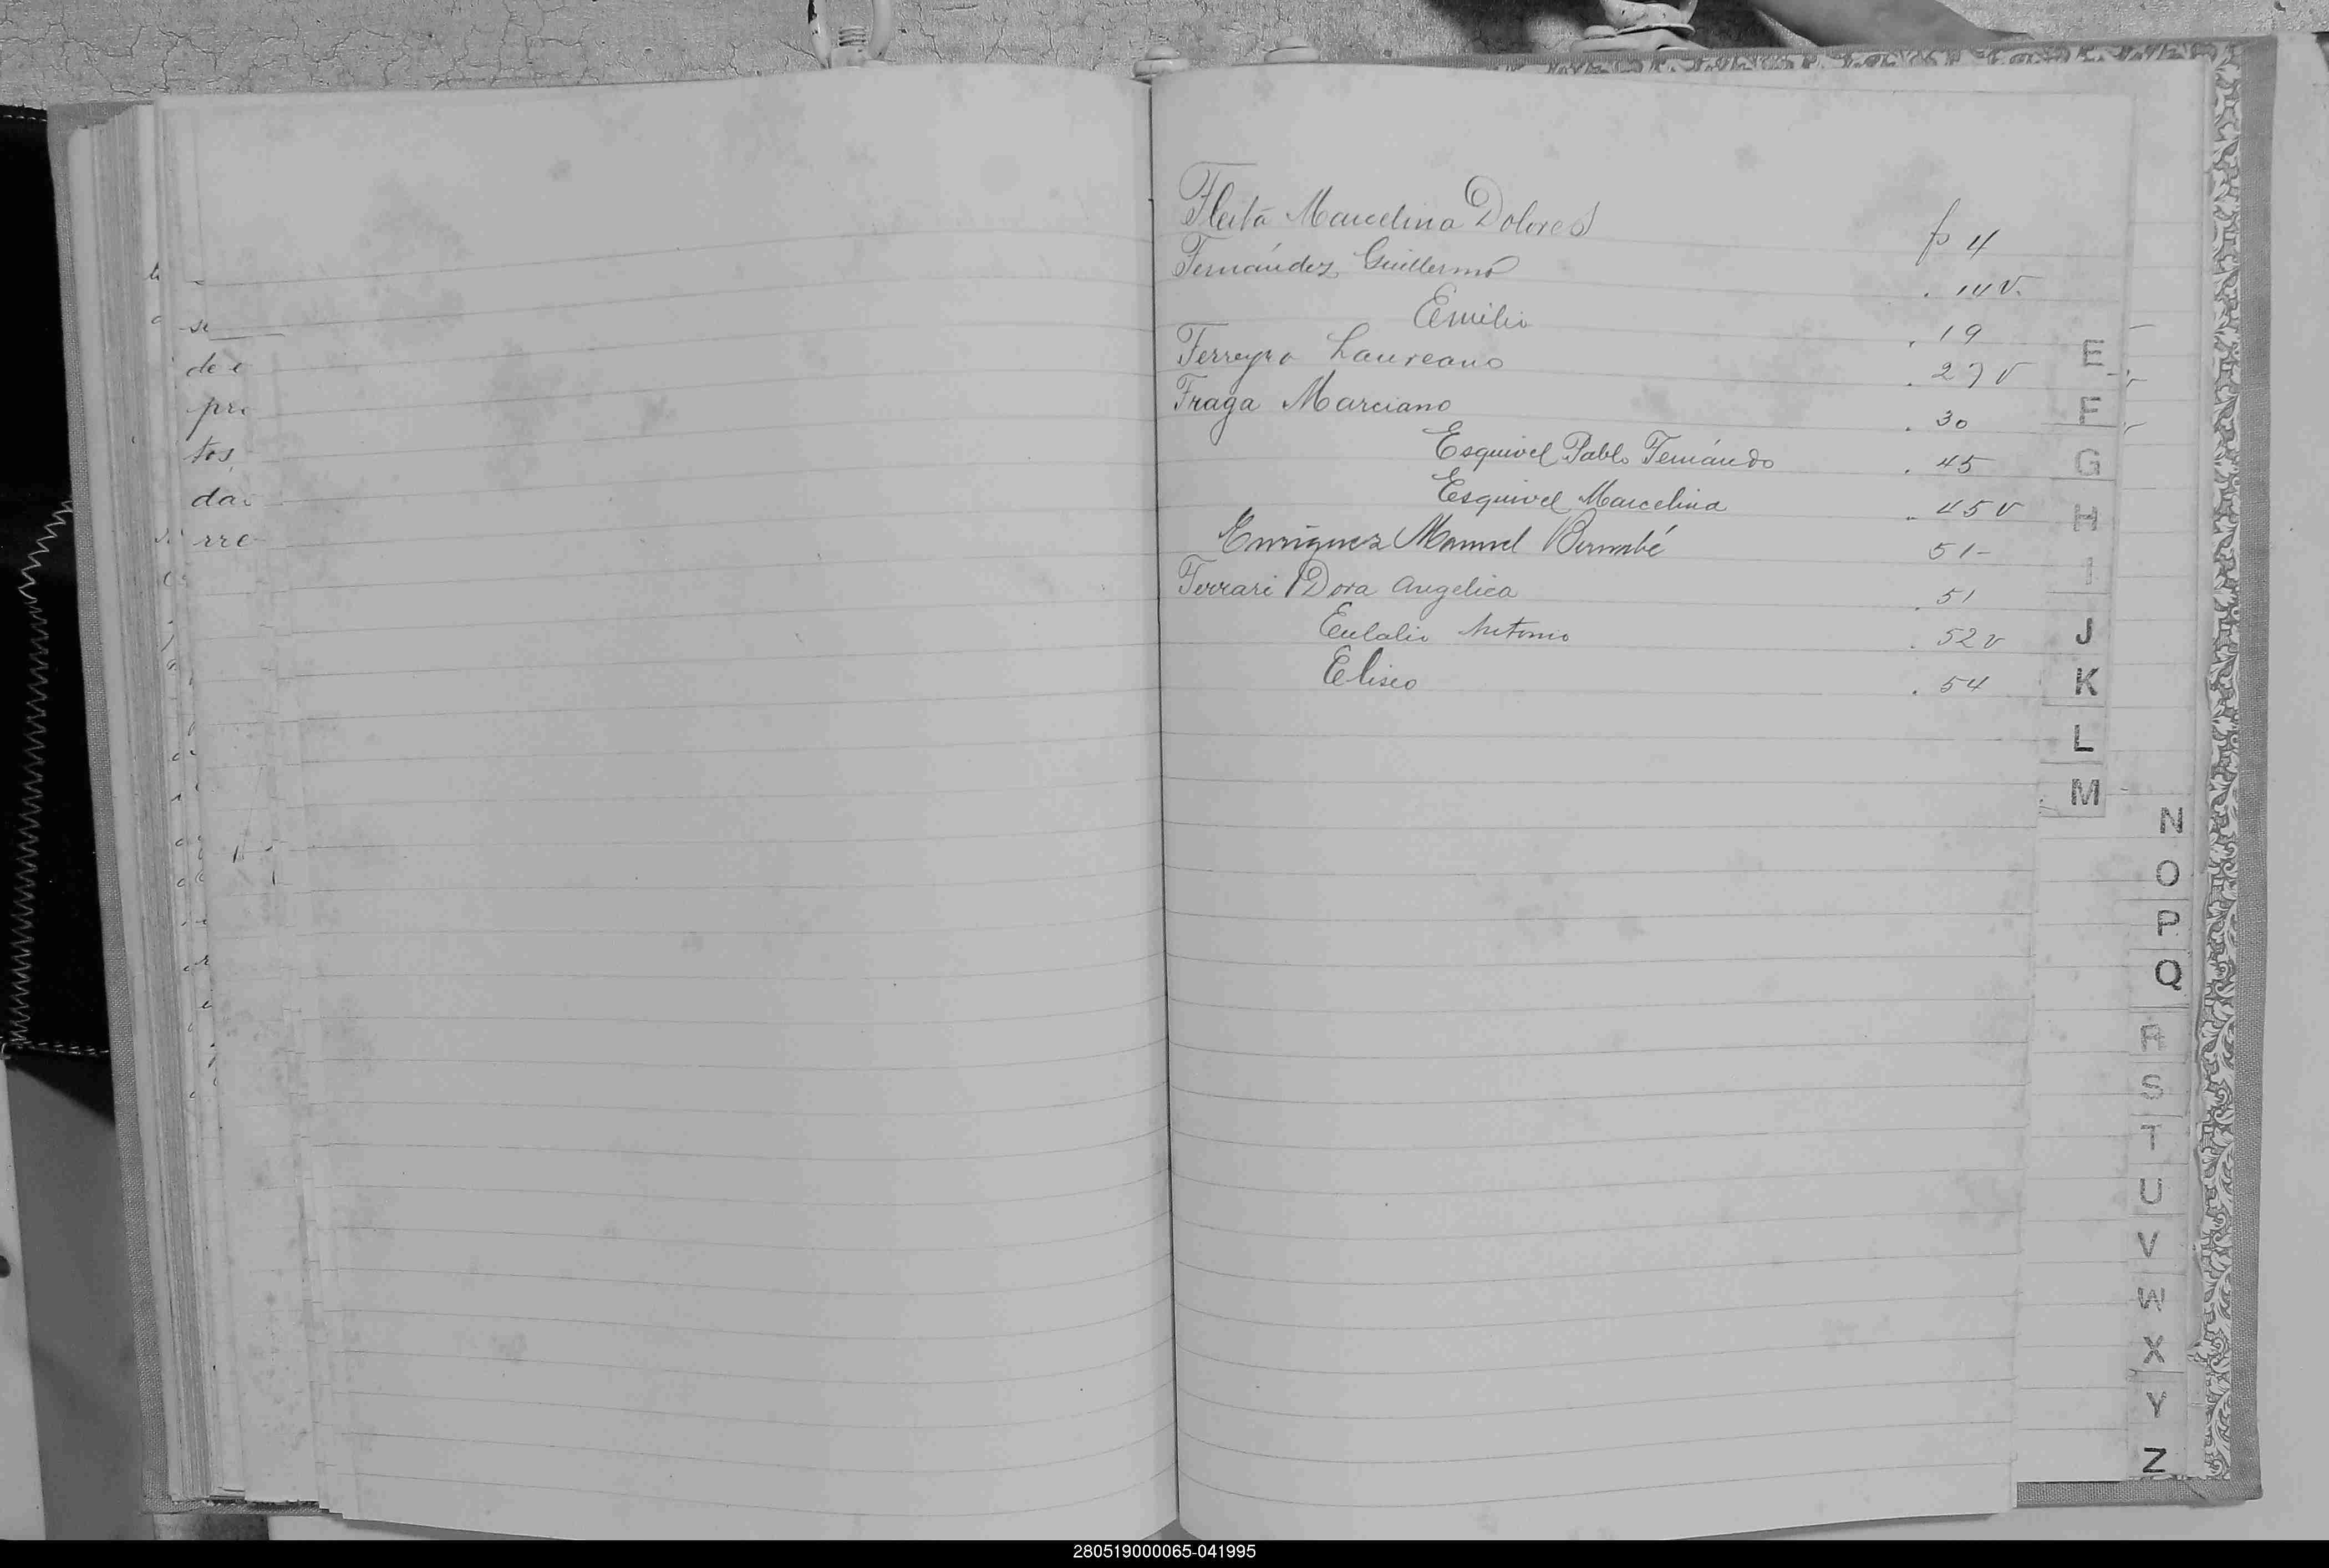 se
de e
pre
tos,
da
rre
Fleita Marcelina Dolores fo 4
Fernández Guillermo . 14 v.
Emilio . 19
Ferreyra Laureano . 27 v
Fraga Marciano . 30
Esquivel Pablo Fernándo . 45
Esquivel Marcelina . 45 v
Enriquez Manuel Bernabé 51-
Ferrari Dora Angelica . 51
Eulalio Antonio . 52 v
Eliseo . 54
E
F
G
H
I
J
K
L
M
N
O
P
Q
R
S
T
U
V
W
X
Y
Z
280519000065-041995